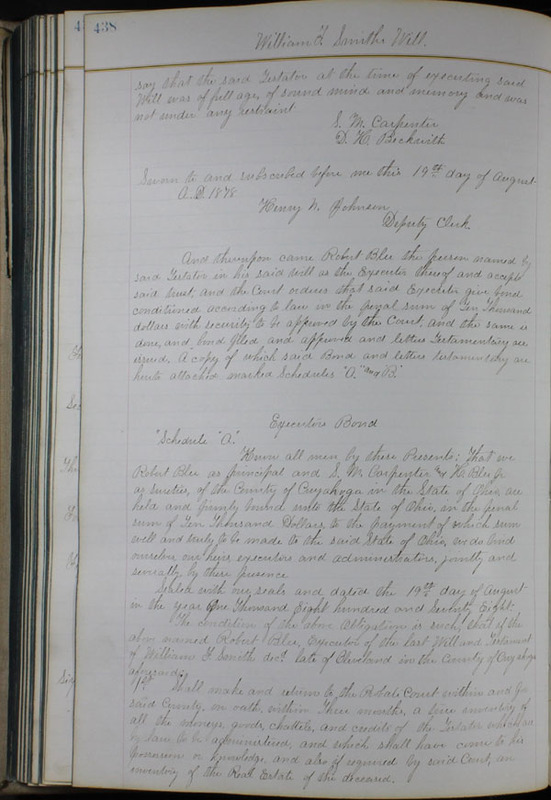 438
William F. Smiths Will.
say that the said Testator at the time of executing said
Will was of full age, of sound mind and memory and was
not under any restraint
S. M. Carpenter
D. H. Beckwith
Sworn to and subscribed before me this 19th day of August
A.D. 1878.
Henry N. Johnson
Deputy Clerk.
And thereupon came Robert Blee the person named by
said Testator in his said will as the Executor thereof and accepts
said trust, and the Court orders that said Executor give bond
conditioned according to law in the penal sum of Ten Thousand
dollars with security to be approved by the Court, and the same is
done, and bond filed and approved and letters Testamentary are
issued. A copy of which said Bond and letters testamentary are
hereto attached marked Schedules "A." and "B."
Executors Bond
"Schedule "A."
Know all men by these Presents; That we
Robert Blee as principal and S. M. Carpenter and H. Blee Jr
as sureties, of the County of Cuyahoga in the State of Ohio, are
held and firmly bound unto the State of Ohio, in the penal
sum of Ten Thousand Dollars, to the payment of which sum
well and truly to be made to the said State of Ohio, we do bind
ourselves our heirs, executors and administrators, jointly and
severally, by these presence
Sealed with our seals and dated the 19th day of August
in the year One Thousand Eight hundred and Seventy Eight.
The condition of the above Obligation is such, that if the
above named Robert Blee, Executor of the last Will and Testament
of William F. Smith decd. late of Cleveland in the County of Cuyahoga
aforesaid;
1st Shall make and return to the Probate Court within and for
said County, on oath, within Three months, a true inventory of
all the moneys, goods, chattels, and credits of the Testator which are
by law to be administered, and which shall have come to his
possession or knowledge, and also if required by said Court, an
inventory of the Real Estate of the deceased.